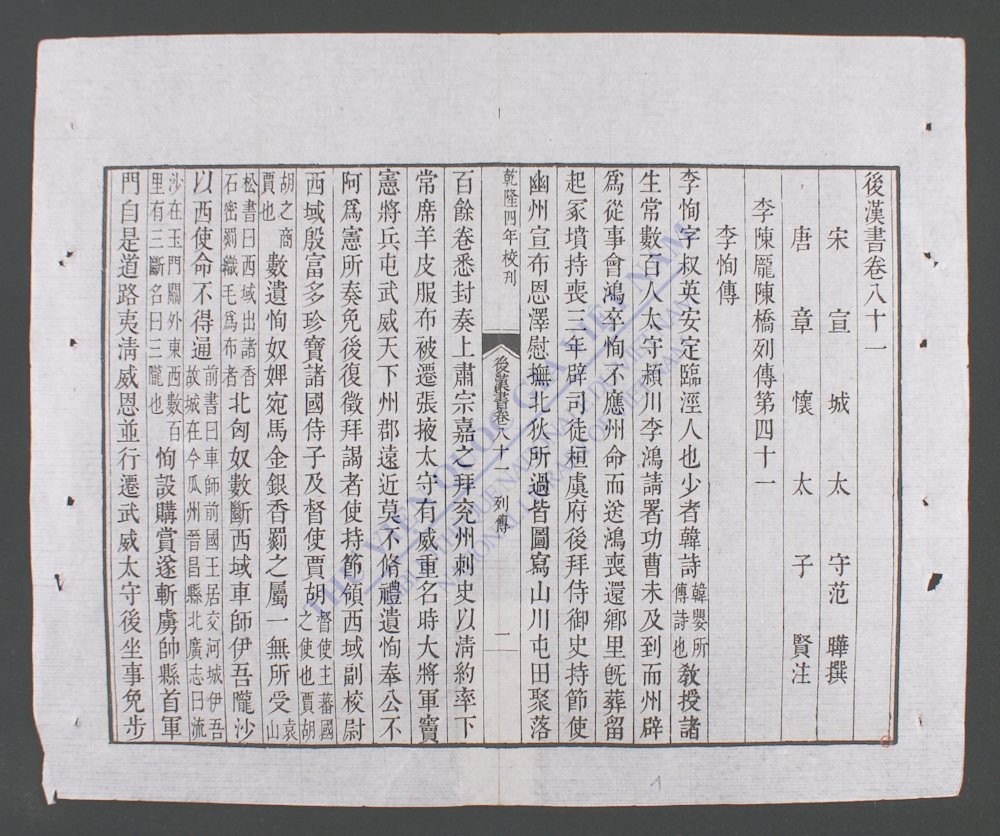 後漢書卷八十一
宋宣城太守范曄撰
唐章懷太子賢注
李陳龐陳橋列傳第四十一
李恂傳
李恂字叔英安定臨涇人也少習韓詩韓嬰所傳詩也教授諸
生常數百人太守潁川李鴻請署功曹未及到而州辟
爲從事會鴻卒恂不應州命而送鴻喪還鄉里既葬留
起冢墳持喪三年辟司徒桓虞府後拜侍御史持節使
幽州宣布恩澤慰撫北狄所過皆圖寫山川屯田聚落
乾隆四年校刊
後漢書卷八十一 列傳 一
百餘卷悉封奏上肅宗嘉之拜兗州刺史以清約率下
常席羊皮服布被遷張掖太守有威重名時大將軍竇
憲將兵屯武威天下州郡遠近莫不脩禮遺恂奉公不
阿爲憲所奏免後復徵拜謁者使持節領西域副校尉
西域殷富多珍寶諸國侍子及督使賈胡督使主蕃國之使也賈胡
胡之商賈也數遺恂奴婢宛馬金銀香罽之屬一無所受袁山
松書曰西域出諸香石密罽織毛爲布者北匈奴數斷西域車師伊吾隴沙
以西使命不得通前書曰車師前國王居交河城伊吾故城在今瓜州晉昌縣北廣志曰流
沙在玉門關外東西數百里有三斷名曰三隴也恂設購賞遂斬虜帥縣首軍
門自是道路夷清威恩並行遷武威太守後坐事免步
THƯ VIỆN QUỐC GIA VIỆT NAM
BIBLIOTHÈQUE NATIONALE DU VIETNAM
NATIONAL LIBRARY OF VIETNAM
1